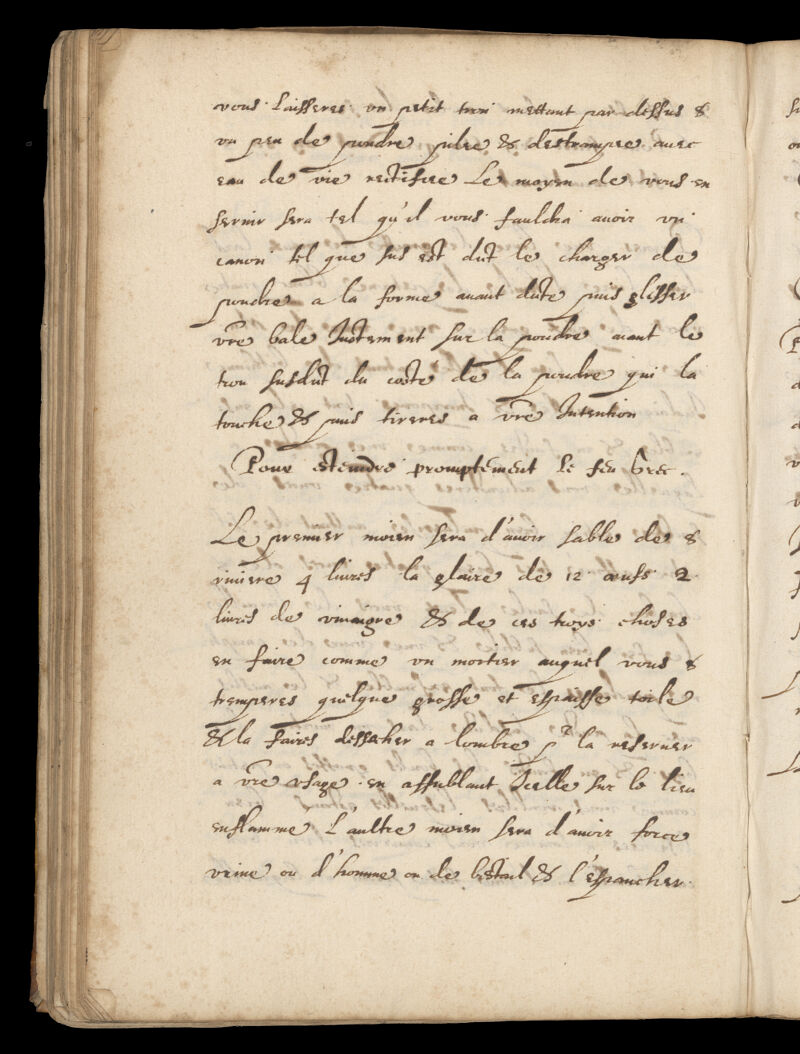 vous laisseres un petit trou mettant par dessus &
un peu de poudre pilee & destrampee avec
eau de vie rectifiee Le moyen de vous en
servir sera tel qu'il vous fauldra avoir un
canon tel que sus est dict le charger de
poudre a la forme avant dicte puis glisser
vre bale Justement sur la poudre aiant le
trou susdict du costé de la poudre qui la
touche & puis tireres a vre Intention
Pour esteindre promptement le feu Grec.
Le premier moien sera d'avoir sable de &
riviere 4 livres la glaire de 12 œufs 2
livres de vinaigre & de ces troys choses
en faire comme un mortier auquel vous &
tremperes quelque grosse et espaisse toile
& la faires dessecher a lombre pr la reserver
a vre usage en affublant Icelle sur le lieu
enflammé L'aultre moien sera d'avoir force
urine ou d'homme ou de bestail & l'espancher